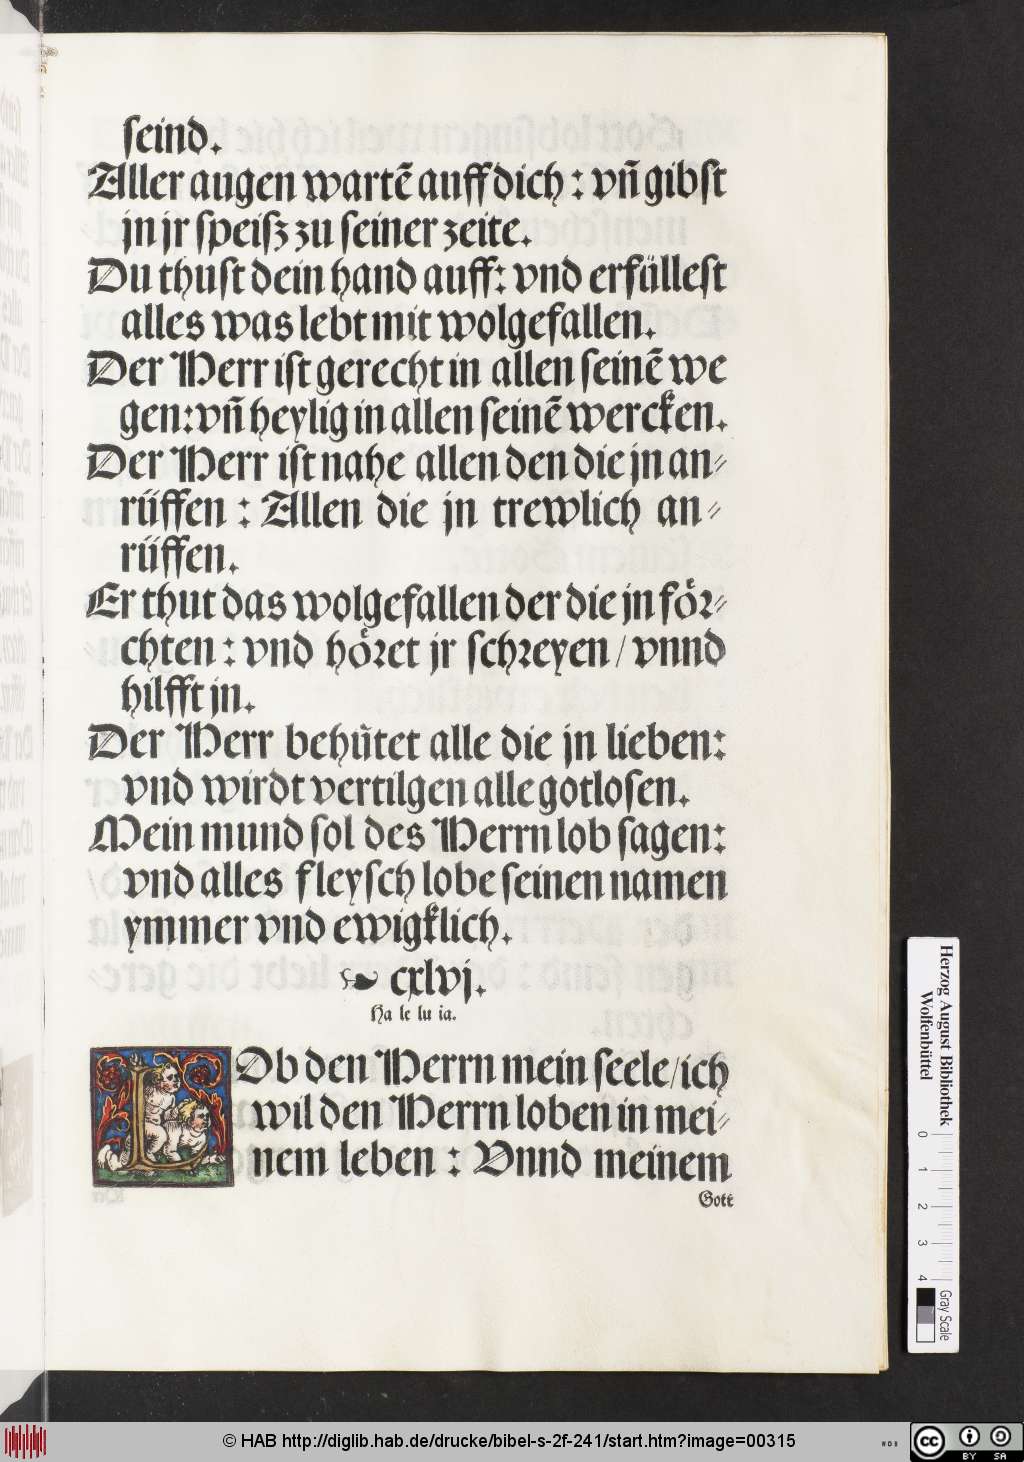 seind.
Aller augen wartẽ auff dich : vñ gibst
jn jr speisz zu seiner zeite.
Du thust dein hand auff: vnd erfüllest
alles was lebt mit wolgefallen.
Der Herr ist gerecht in allen seinẽ we
gen: vñ heylig in allen seinẽ wercken.
Der Herr ist nahe allen den die jn an⸗
rüffen : Allen die jn trewlich an⸗
rüffen.
Er thut das wolgefallen der die jn foͤr⸗
chten : vnd hoͤret jr schreyen / vnnd
hilfft jn.
Der Herr behuͤtet alle die jn lieben:
vnd wirdt vertilgen alle gotlosen.
Mein mund sol des Herrn lob sagen:
vnd alles fleysch lobe seinen namen
ymmer vnd ewigklich.
☙ cxlvj.
Ha le lu ia.
LOb den Herrn mein seele / ich
wil den Herrn loben in mei⸗
nem leben : Vnnd meinem
Gott
Herzog August Bibliothek
Wolfenbüttel
0 1 2 3 4
Gray Scale
© HAB http://diglib.hab.de/drucke/bibel-s-2f-241/start.htm?image=00315
WDB
cc BY SA